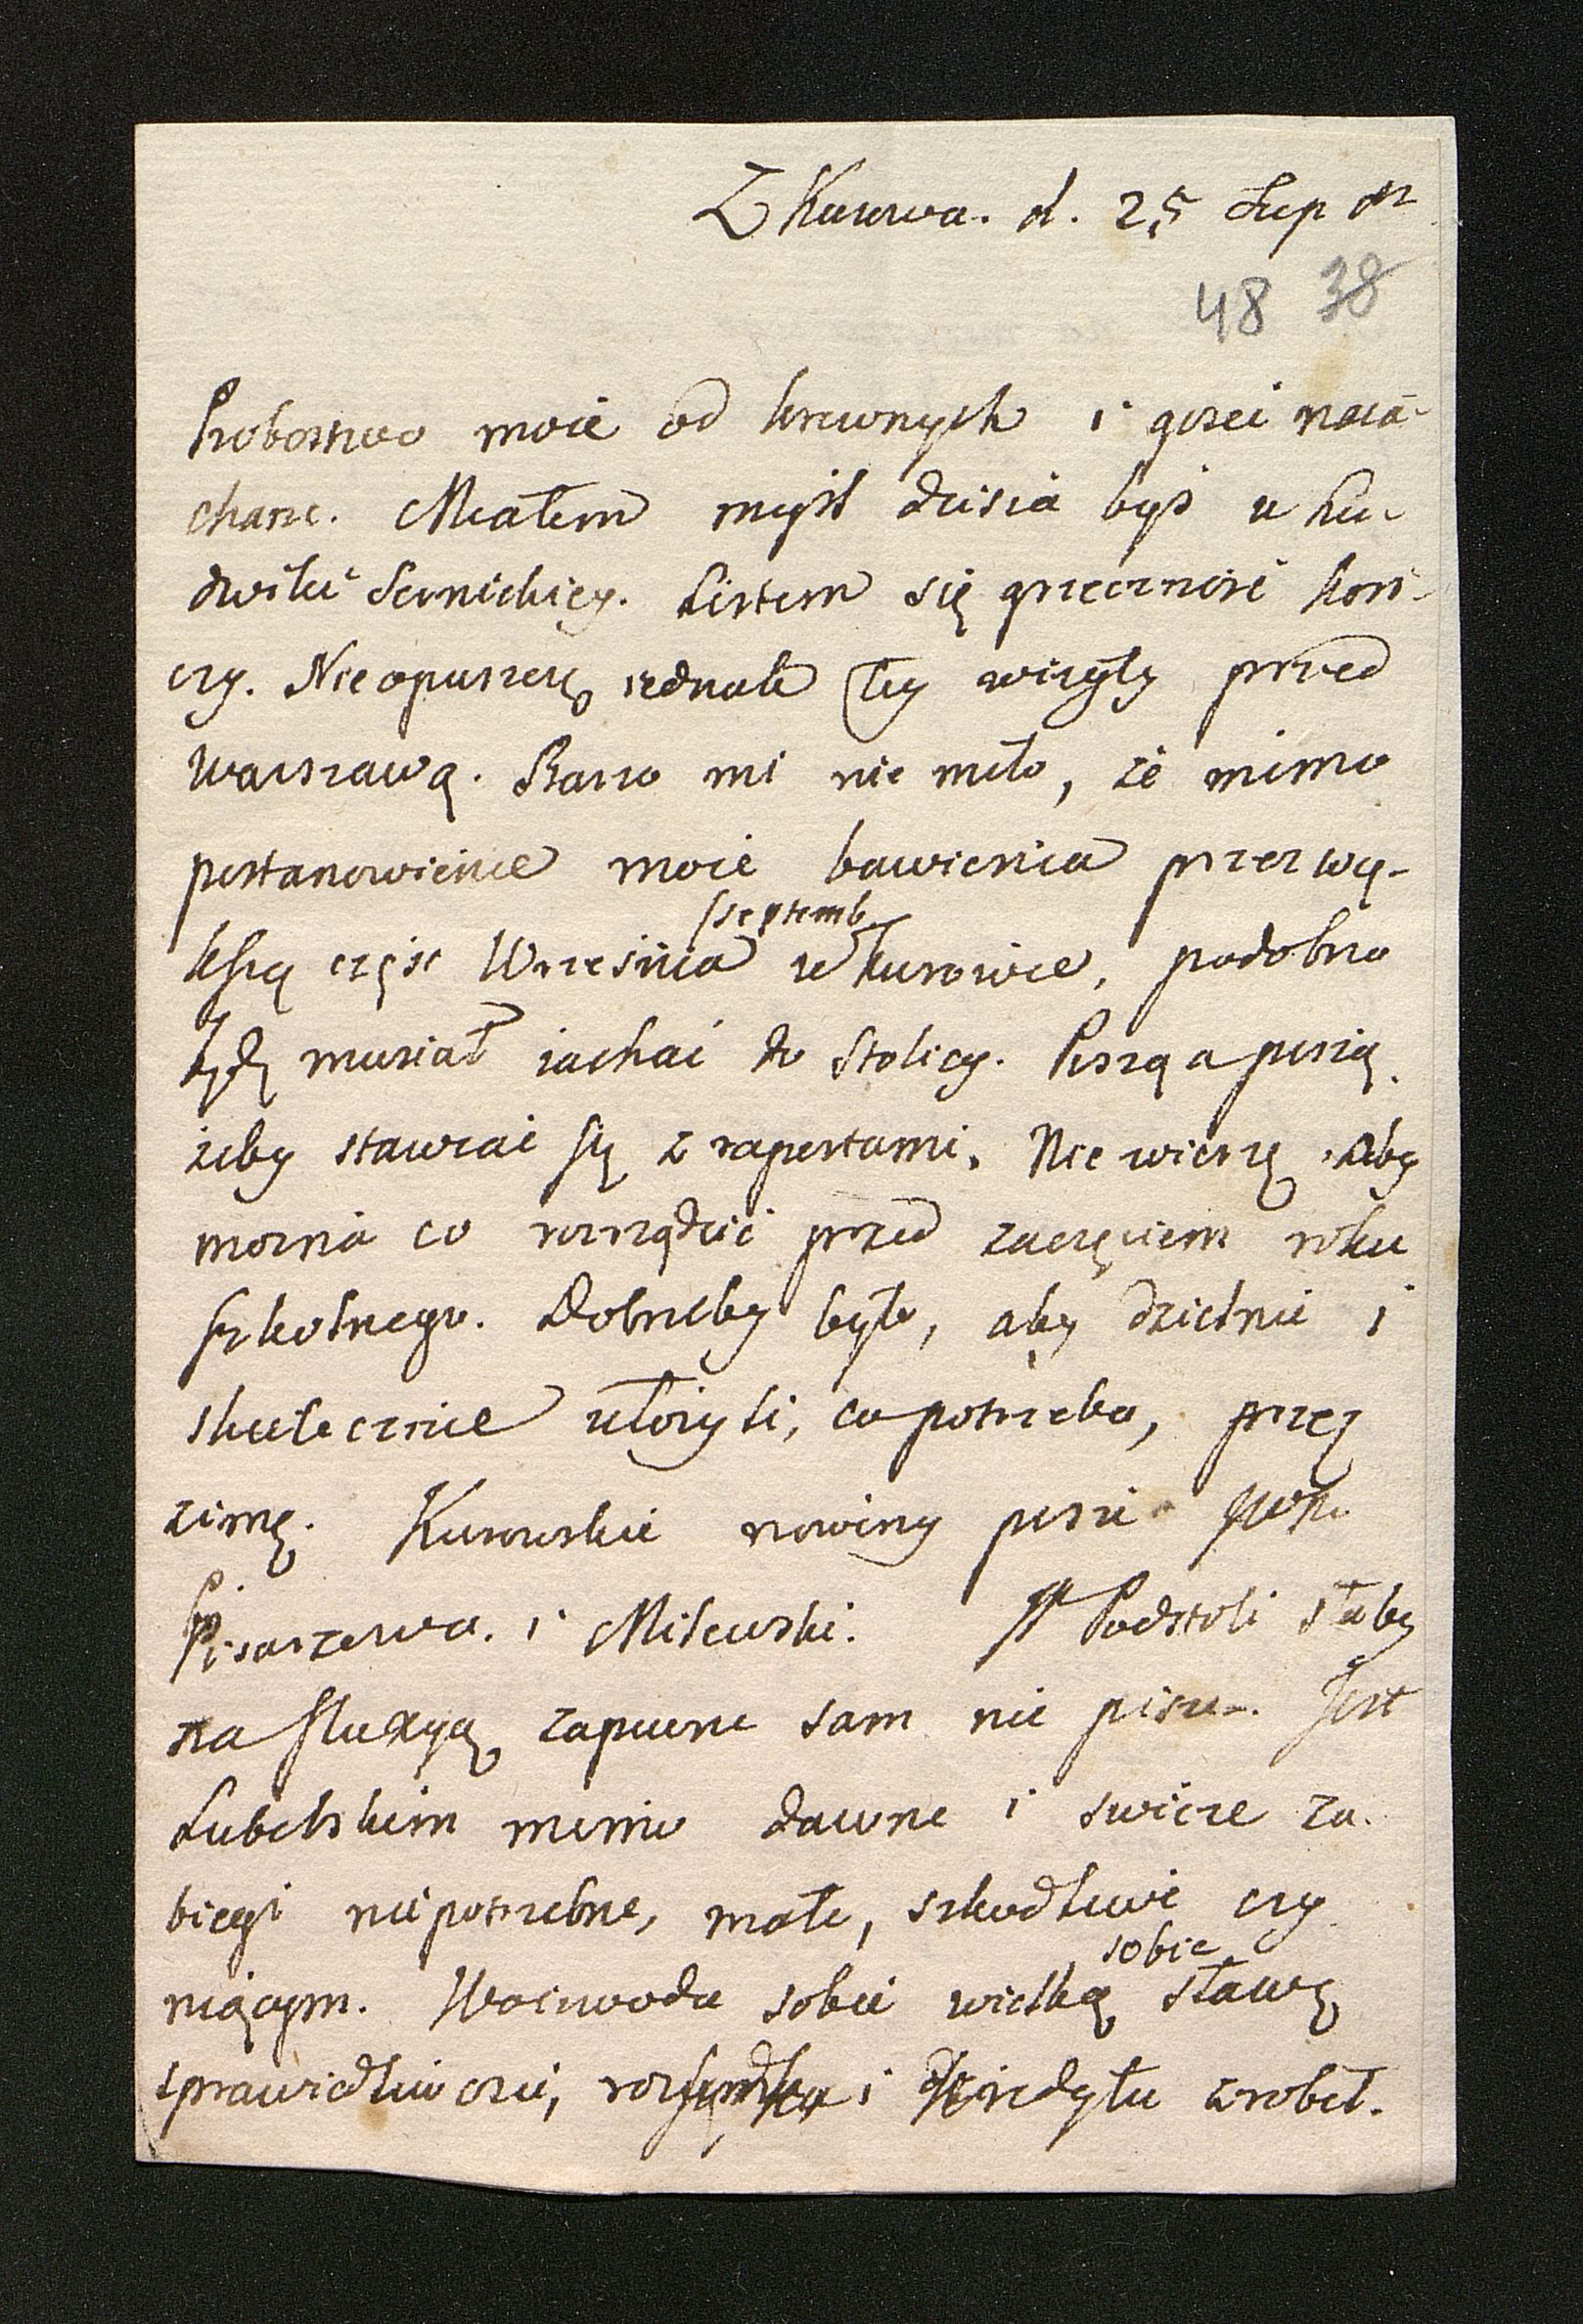 Z Kurowa. d. 25
48 38
Probostwo moie od krewnych i gosci naia-
chane. Miałem myśl dzisia byś u Lu-
dwiki Sernickiey. Listem się grzecznosć kon-
czy. Nie opuszczę iednak tey wizyty przed
Warszawą. Barzo mi nie miło, że mimo
postanowienie moie bawienia przez wię-
kszą częsc Wrzesnia w Kurowie, podobno
septemb
będę musiał iachać do Stolicy. Piszą a piszą
żeby stawiać się z raportami. Nie wierzę żeby
można co rozrządzić przed zaczęciem roku
szkolnego. Dobrzeby było, aby dzielnie i
skutecznie ułożyli, co potrzeba, przez
zimę. Kurowskie nowiny pisze
Pisarzewa. i Milewski. JP Podstoli słaby
na fluxyą zapewne sam nie pisze. Jest
Lubelskim mimo dawne i swieże za-
biegi niepotrzebne, małe, szkodliwe czy
niącym. Woiewoda sobie wielką sławę
sobie
sprawiedliwosci, i kredytu zrobił.